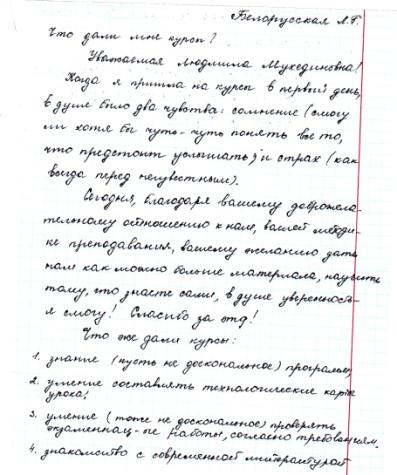 Белорусская Л.Г.
Что дали мне курсы?
Уважаемая Людмила Мухединовна!
Когда я пришла на курсы в первый день,
в душе было два чувства: сомнение (смогу
ли хотя бы чуть-чуть понять все то,
что предстоит услышать) и страх (как
всегда перед неизвестным).
Сегодня, благодаря вашему доброжела-
тельному отношению к нам, вашей методи-
ке преподавания, вашему желанию дать
нам как можно больше материала, научить
тому, что знаете сами, в душе уверенность-
я смогу! Спасибо за это!
Что же дали курсы:
1. знание (пусть не доскональное) программ,
2. умение составлять технологические карты
урока;
3. умение (тоже не доскональное) проверять
экзаменац-ые работы, согласно требованиям.
4. знакомство с современной литературой